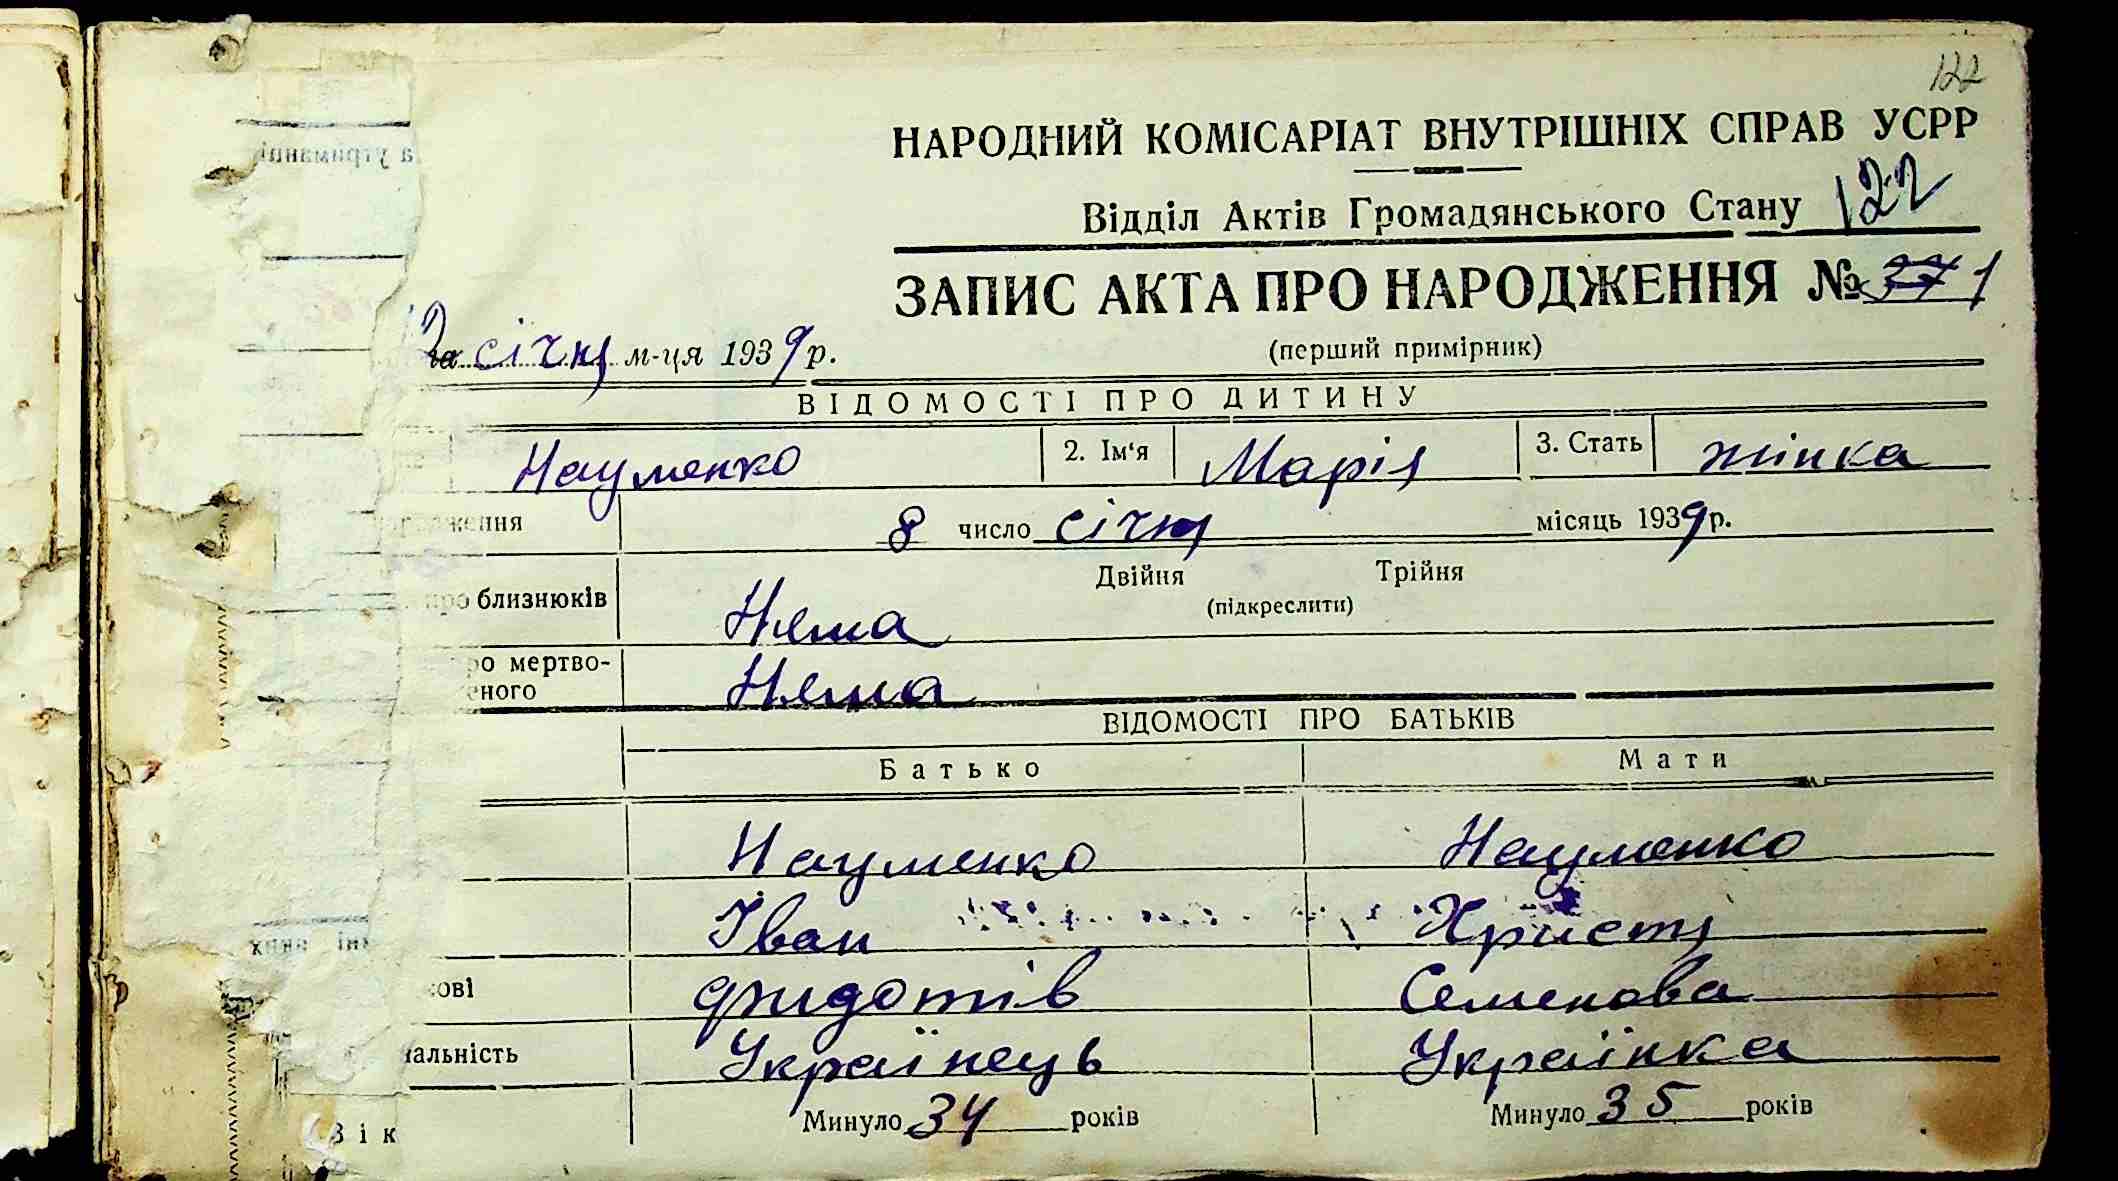 122
НАРОДНИЙ КОМІСАРІАТ ВНУТРІШНІХ СПРАВ УСРР
Відділ Актів Громадянського Стану 122
ЗАПИС АКТА ПРО НАРОДЖЕННЯ № 1
за січня м-ця 1939 р.
(перший примірник)
ВІДОМОСТІ ПРО ДИТИНУ
Науменко 2. Ім'я Марія 3. Стать жінка
8 число січня місяць 1939 р.
Двійня Трійня
про близнюків Нема (підкреслити)
про мертво-
еного Нема
ВІДОМОСТІ ПРО БАТЬКІВ
Батько Мати
Науменко Науменко
Іван Христя
кові Фидотів Семенова
альність Українець Українка
Вік Минуло 34 років Минуло 35 років